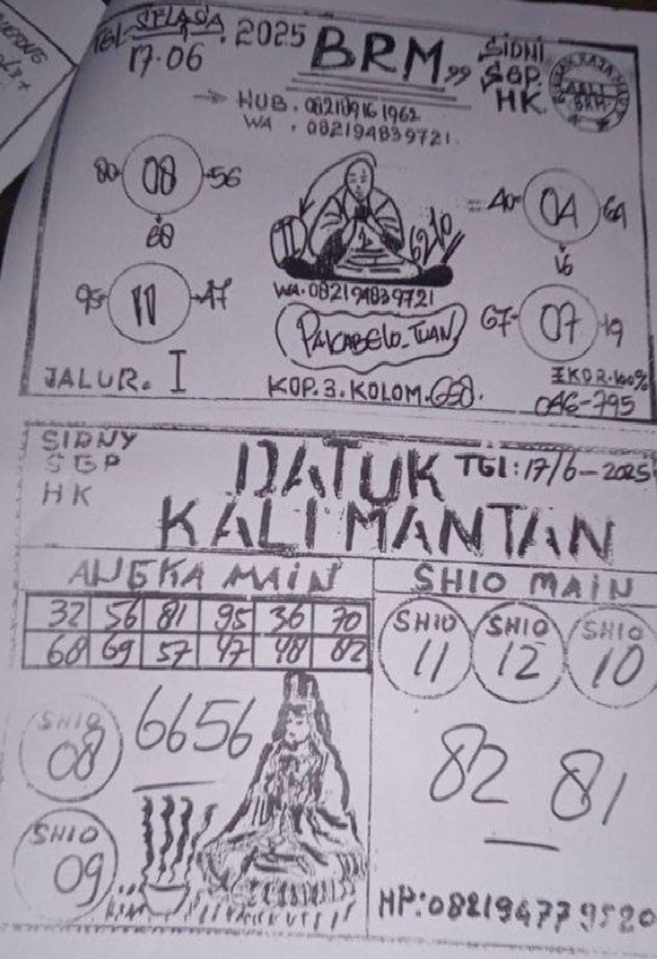 TGL SELASA . 2025
17.06
BRM
SIDNI
SGP.
HK.
HUB. 082109161962
WA . 082194839721.
80 08 56
68
95 11 47
JALUR. I
WA.082194839721
PAKABELO_TUAN
KOP.3.KOLOM.658.
40 04 64
16
67 07 19
EKOR.100%
046-795
SIDNY
SGP
HK
DATUK
TGl:17/6-2025
KALIMANTAN
ANGKA MAIN
32 56 81 95 36 70
68 69 57 47 48 82
SHIO MAIN
SHIO 11
SHIO 12
SHIO 10
SHIO 08
6656
SHIO 09
82 81
HP:082194779520